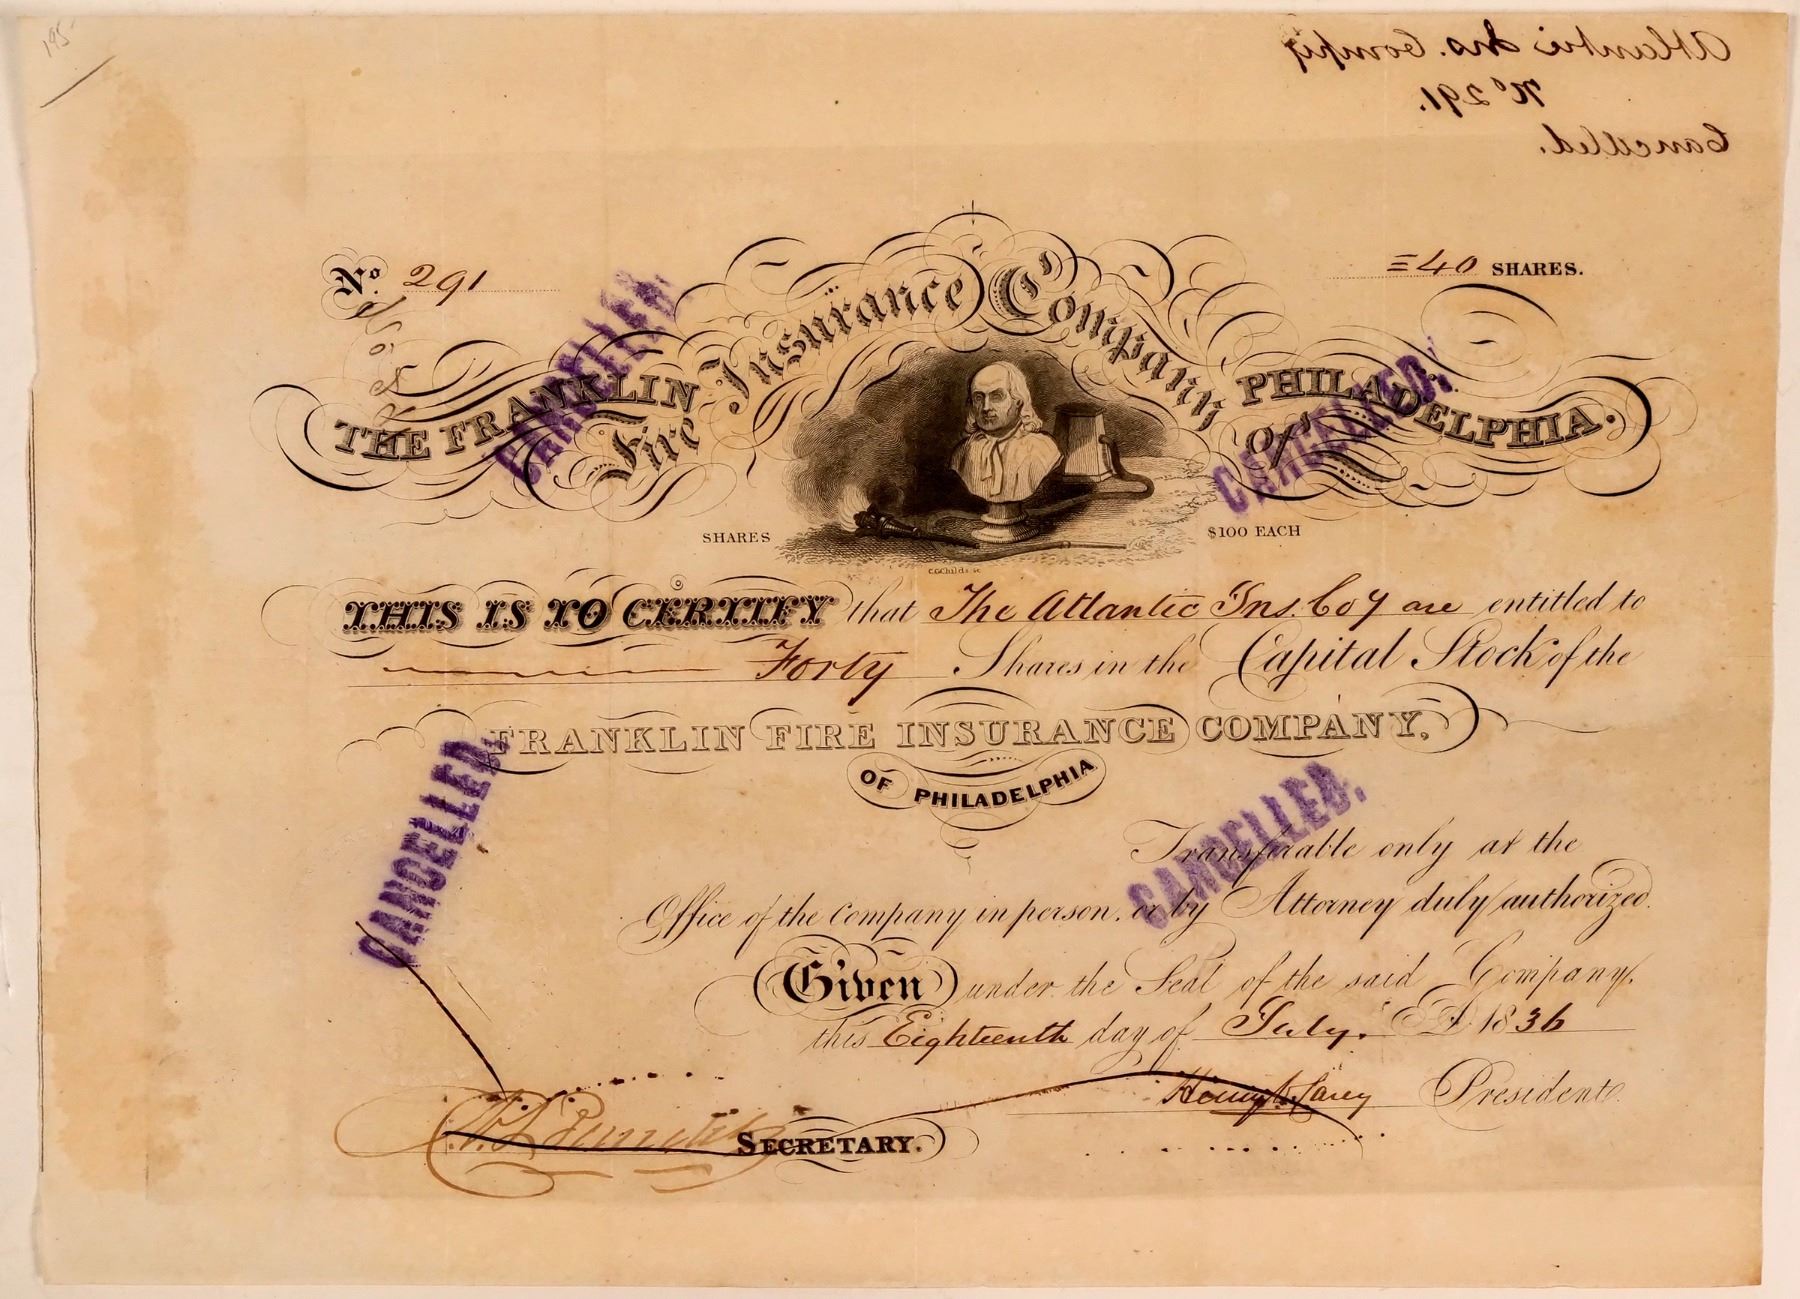 195
Atlantic Ins. Compy
No 291.
Cancelled.
No. 291
=40 SHARES.
THE FRANKLIN Fire Insurance Company Of PHILADELPHIA.
CANCELLED.
CANCELLED.
SHARES
$100 EACH
C.G.Childs sc
THIS IS TO CERTIFY that The Atlantic Ins. Coy are entitled to
Forty Shares in the Capital Stock of the
FRANKLIN FIRE INSURANCE COMPANY.
OF PHILADELPHIA
CANCELLED.
CANCELLED.
Transferable only at the
Office of the Company in person. or by Attorney duly authorized.
Given under the Seal of the said Company,
this Eighteenth day of July. AD 1836
Henry C. Carey President.
SECRETARY.